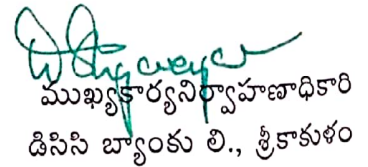 ముఖ్యకార్యనిర్వాహణాధికారి
డిసిసి బ్యాంకు లి., శ్రీకాకుళం